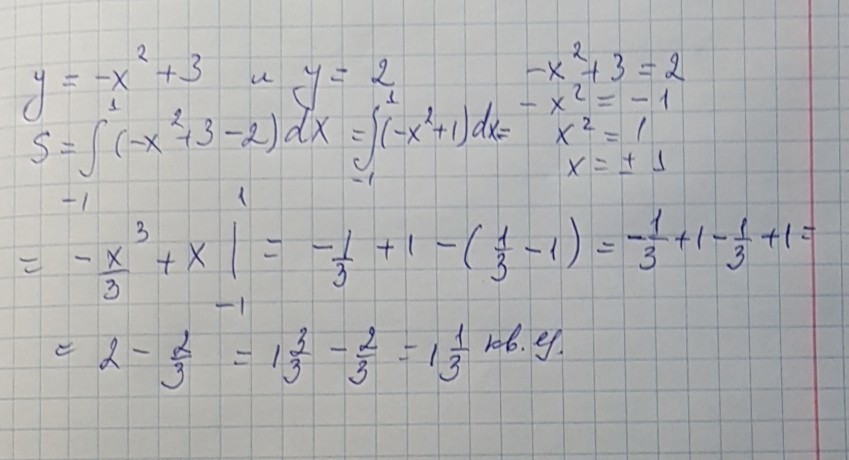 y = -x² + 3 и y = 2
-x² + 3 = 2
-x² = -1
x² = 1
x = ± 1
S = ∫₋₁¹ (-x² + 3 - 2) dx = ∫₋₁¹ (-x² + 1) dx =
= -x³/3 + x |₋₁¹ = -1/3 + 1 - (1/3 - 1) = -1/3 + 1 - 1/3 + 1 =
= 2 - 2/3 = 1 3/3 - 2/3 = 1 1/3 кв. ед.